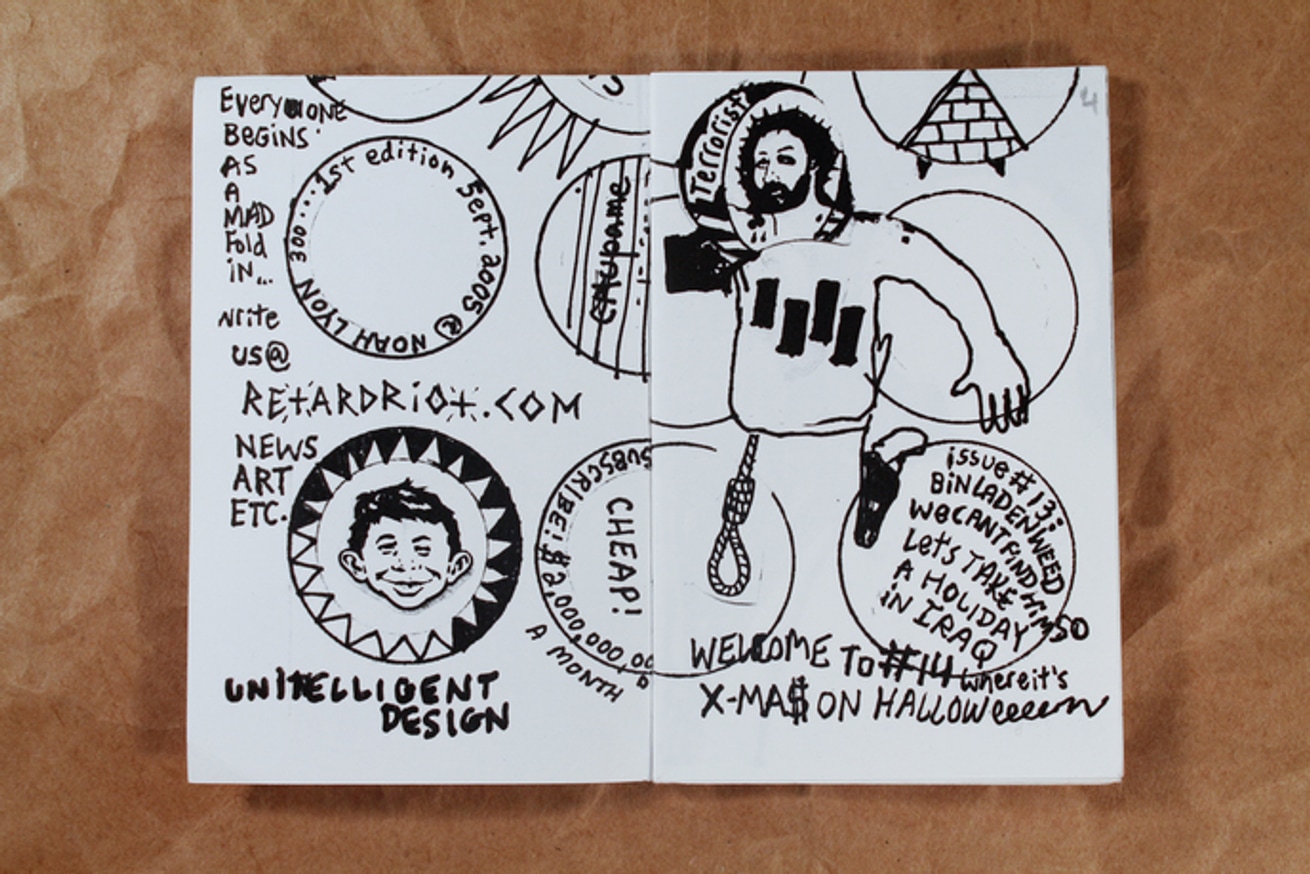 Everyone
BEGINS
AS
A
MAD
Fold
iN...
write
us@
RETARDRiOT.COM
NEWS
ART
ETC.
300...1st edition Sept. 2005 © NOAH LYON
UNITELLIGENT
DESIGN
SUBSCRIBE! $2,000,000,00
CHEAP!
A MONTH
Terrorist
4
issue #13:
BiNLADEN WEED
WECANTFIND HiM SO
Let's TAKE
A HOLIDAY
iN IRAQ
WELCOME To #14 where it's
X-MA$ ON HALLOWeeeen